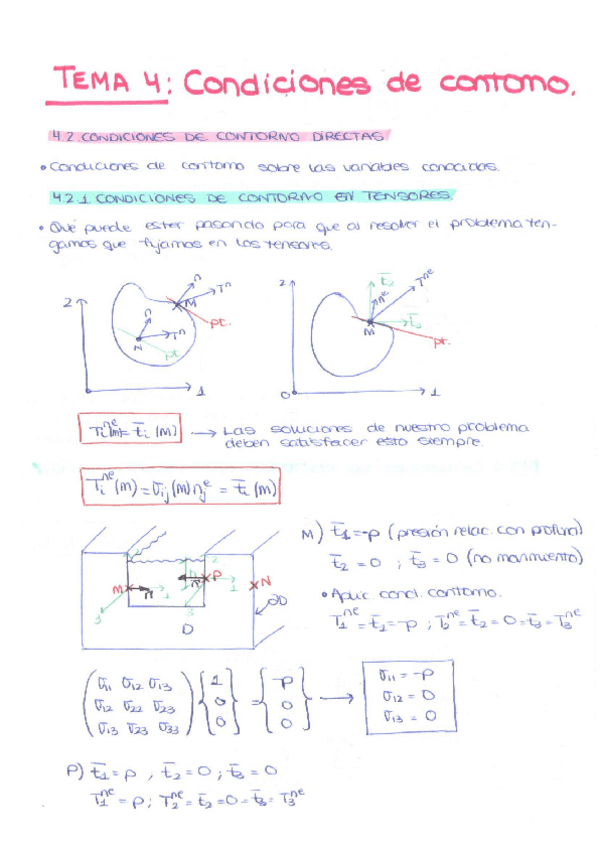 TEMA 4: Condiciones de contorno.
4.2 CONDICIONES DE CONTORNO DIRECTAS
• Condiciones de contorno sobre las variables conocidas.
4.2.1 CONDICIONES DE CONTORNO EN TENSORES.
• Qué puede estar pasando para que al resolver el problema ten-
gamos que fijarnos en los tensores.
2 n Tⁿ M pt. n Tⁿ N pt 1
2 t̄₂ nᵉ Tⁿᵉ t̄₁ M pt. 0 1
Tᵢⁿᵉ(M) = t̄ᵢ (M) → Las soluciones de nuestro problema
deben satisfacer esto siempre.
Tᵢⁿᵉ(M) = σᵢⱼ(M) nⱼᵉ = t̄ᵢ (M)
M) t̄₁ = -p (presión relac. con profund)
t̄₂ = 0 ; t̄₃ = 0 (no movimiento)
• Aplic. cond. contorno.
T₁ⁿᵉ = t̄₁ = -p ; T₂ⁿᵉ = t̄₂ = 0 = t̄₃ = T₃ⁿᵉ
M n 1 3 2 n P 1 3 N ∂D D
(σ₁₁ σ₁₂ σ₁₃) {1} = {-p} → σ₁₁ = -p
(σ₁₂ σ₂₂ σ₂₃) {0} {0} σ₁₂ = 0
(σ₁₃ σ₂₃ σ₃₃) {0} {0} σ₁₃ = 0
P) t̄₁ = p , t̄₂ = 0 ; t̄₃ = 0
T₁ⁿᵉ = p ; T₂ⁿᵉ = t̄₂ = 0 = t̄₃ = T₃ⁿᵉ